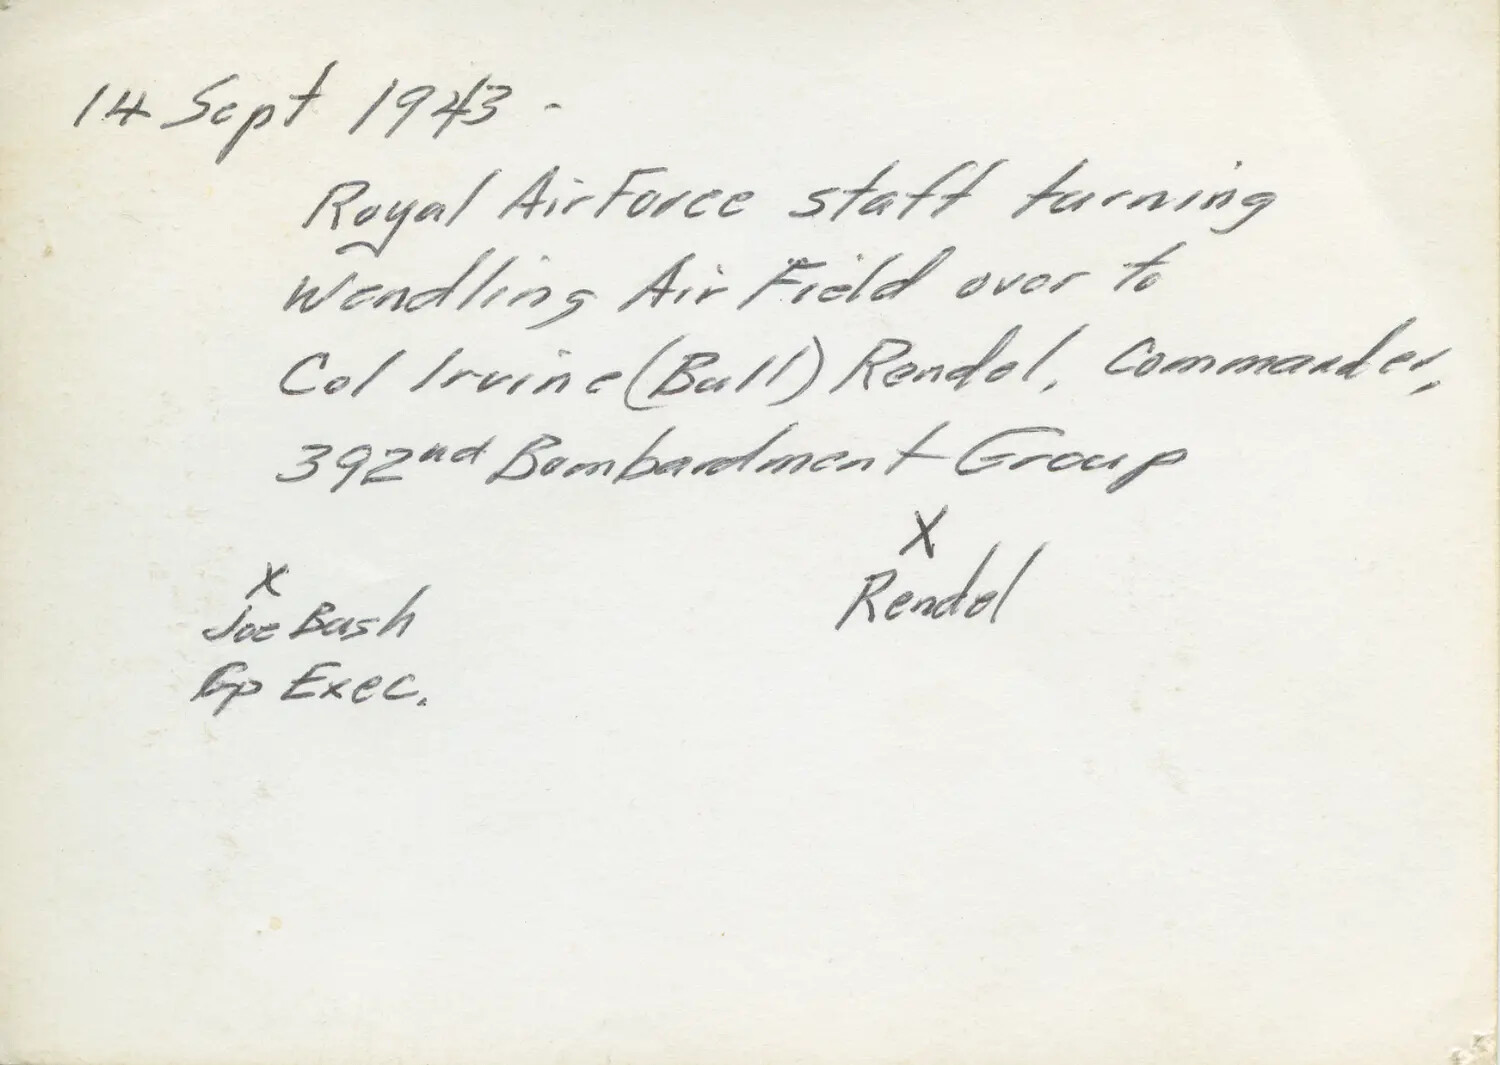 14 Sept 1943 -
Royal Air Force staff turning
Wendling Air Field over to
Col Irvine (Bull) Rendel, Commander,
392nd Bombardment Group
X
Rendel
X
Joe Bush
Gp Exec.